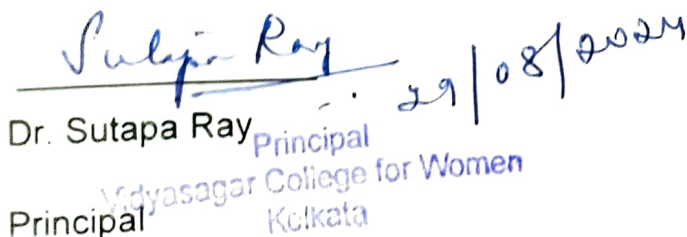 Sutapa Ray
29/08/2024
Dr. Sutapa Ray
Principal
Vidyasagar College for Women
Principal
Kolkata